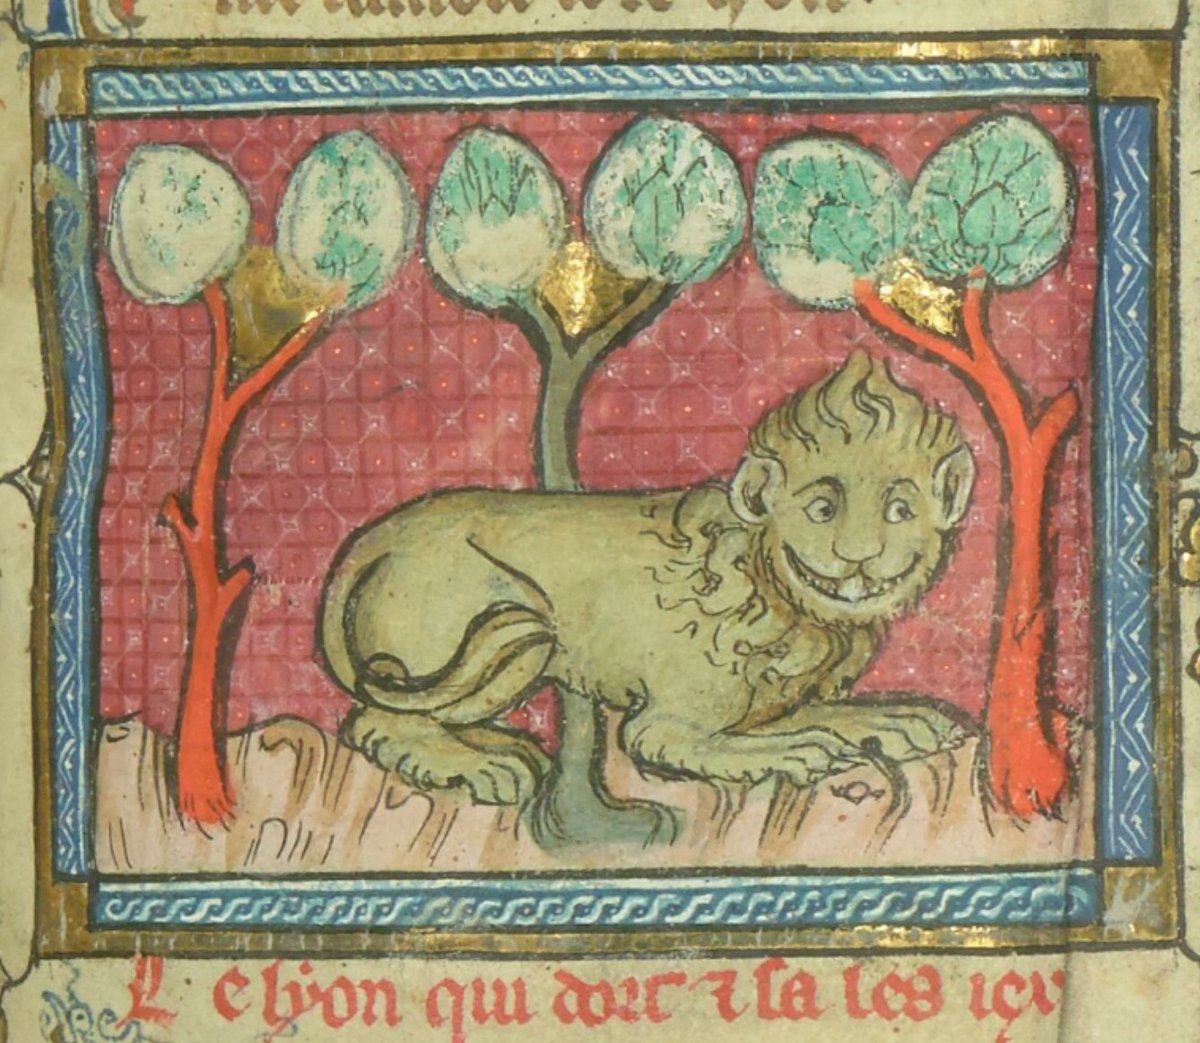 Le lyon qui dort ⁊ sa les iex